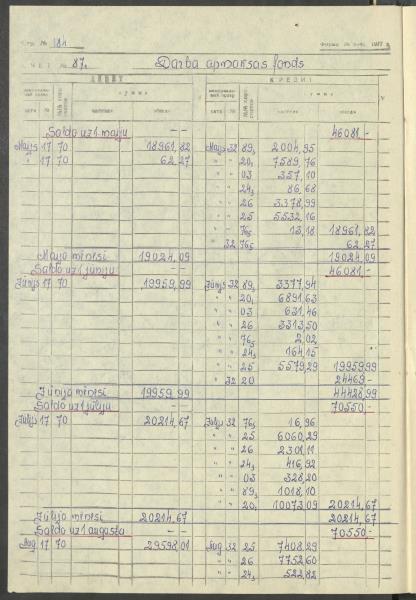 181
87₁ Darba apmaksas fonds
ДЕБЕТ КРЕДИТ
Saldo uz 1 maiju -- 46081.-
Maijs 17 70 18961,82 Maijs 32 89₁ 2004,95
" 17 70 62.27 " " 20₁ 7589,76
" " 03 357,10
" " 24₃ 86,68
" " 26 3378,99
" " 25 5532,16
" " 76₅ 12,18 18961,82
" 32 76₅ 62.27
Maija mēnesī 19024,09 19024,09
Saldo uz 1 jūniju -- 46081.-
Jūnijs 17 70 19959,99 Jūnijs 32 89₁ 3377,94
" " 20₁ 6891,63
" " 03 631,46
" " 26 3313,50
" " 76₅ 2,02
" " 24₃ 164,15
" " 25 5579,29 19959,99
" 32 20 24469.-
Jūnija mēnesī 19959,99 44428,99
Saldo uz 1 jūliju -- 70550.-
Jūlijs 17 70 20214,67 Jūlijs 32 76₅ 16,96
" " 25 6060,29
" " 26 2301,11
" " 24₃ 416,92
" " 03 328,20
" " 89₁ 1018,10
" " 20₁ 10073,09 20214,67
Jūlija mēnesī 20214,67 20214,67
Saldo uz 1 augustu -- 70550.-
Aug 17 70 29598,01 Aug 32 25 7408,29
" " 26 7752,60
" " 24₃ 522,82